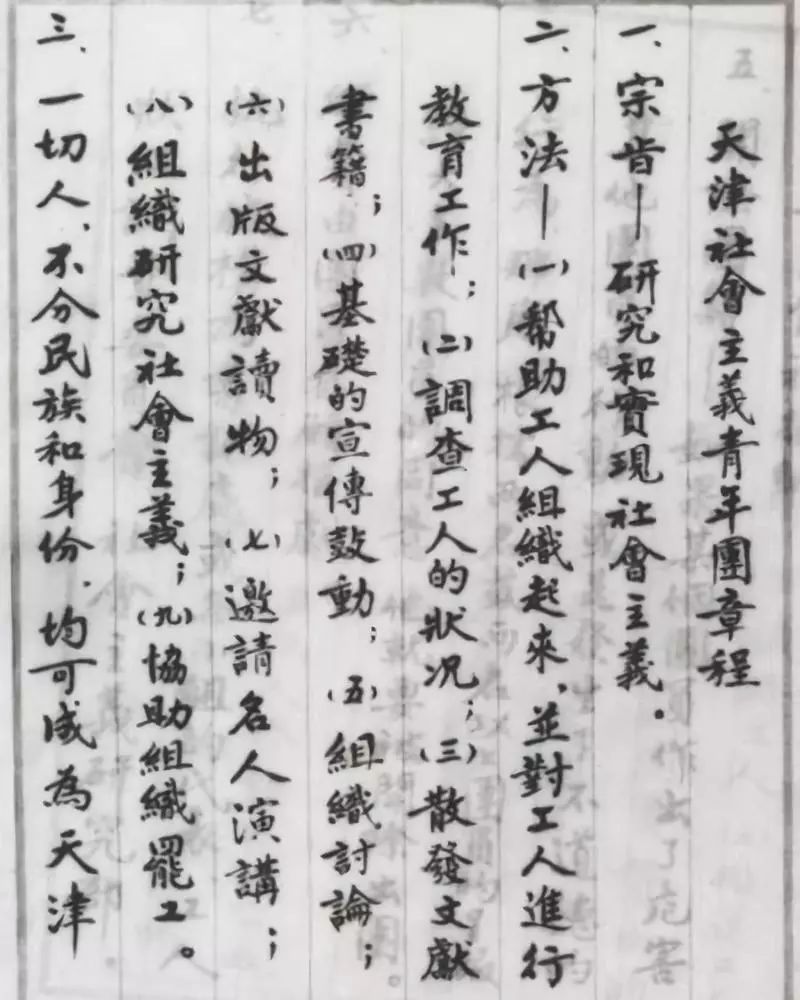 天津社會主義青年團章程
一、宗旨—研究和實現社會主義。
二、方法—(一)幫助工人組織起來，並對工人進行
教育工作；(二)調查工人的狀況；(三)散發文獻
書籍；(四)基礎的宣傳鼓動；(五)組織討論；
(六)出版文獻讀物；(七)邀請名人演講；
(八)組織研究社會主義；(九)協助組織罷工。
三、一切人、不分民族和身份，均可成為天津